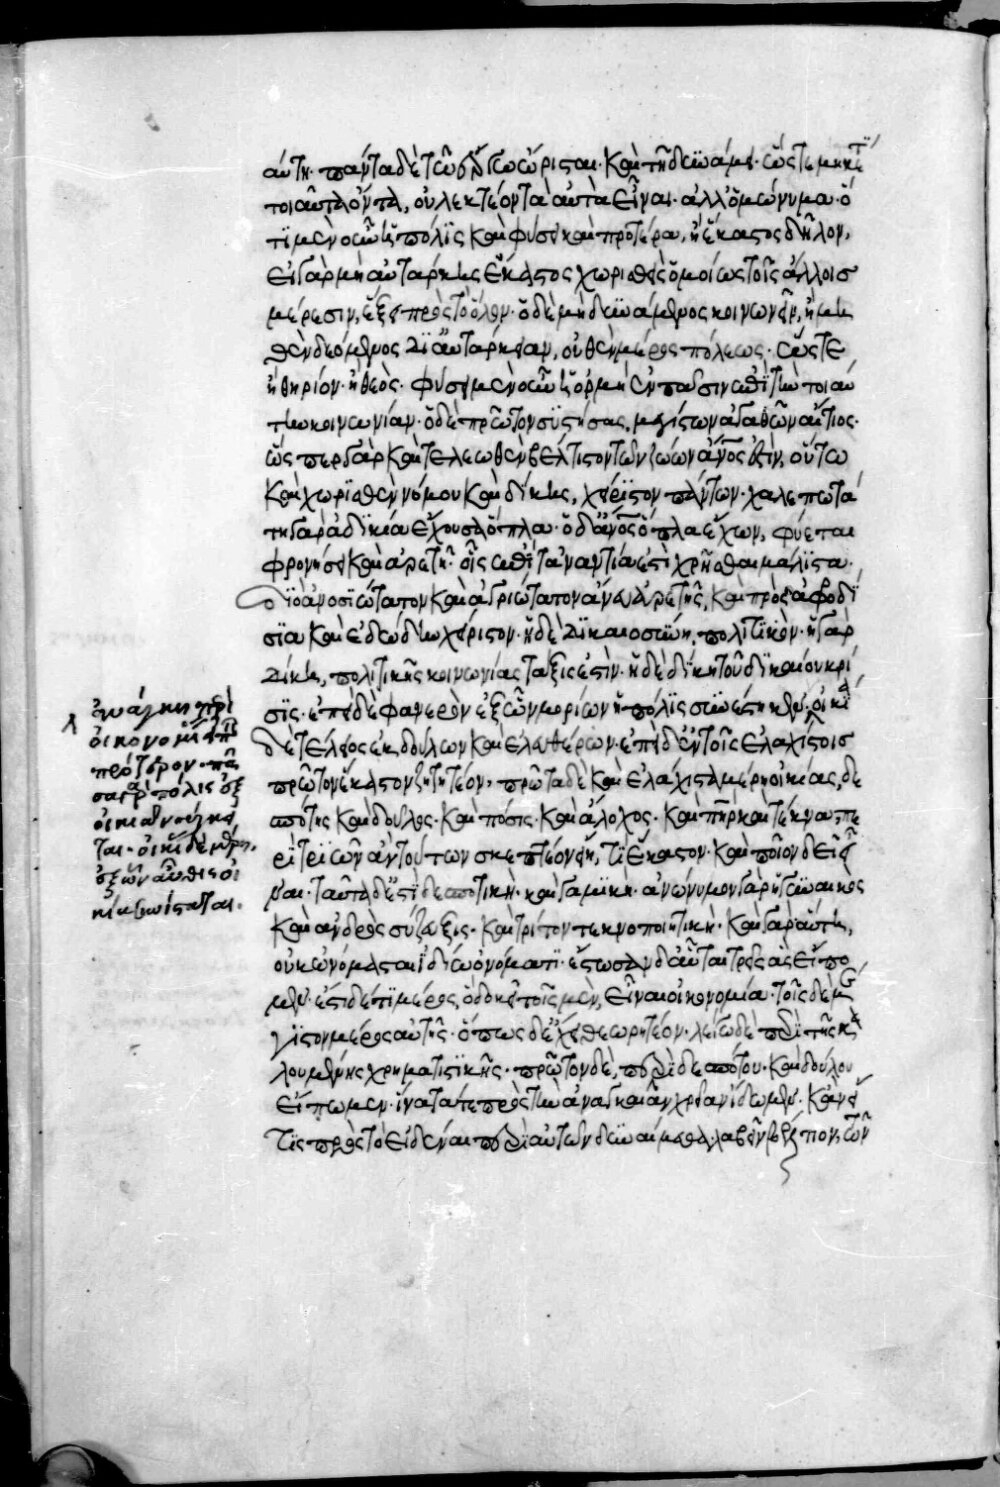 αύτη· πάντα δὲ τῶ ἔργω ὥρισται· καὶ τῆ δυνάμει· ὥστε μηκέτι
τοιαῦτα ὄντα, οὐ λεκτέον τὰ αὐτὰ εἶναι· ἀλλ' ὁμώνυμα· ὅ
τι μὲν οὖν ἡ πόλις καὶ φύσει καὶ πρότερα, ἢ ἕκαστος δῆλον,
εἰ γὰρ μὴ αὐτάρκης ἕκαστος χωρισθεὶς ὁμοίως τοῖς ἄλλοισ
μέρεσιν, ἕξει πρὸς τὸ ὅλον· ὁ δὲ μὴ δυνάμενος κοινωνεῖν, ἢ μη
θὲν δεόμενος δι' αὐτάρκειαν, οὐθὲν μέρος πόλεως· ὥστε
ἢ θηρίον· ἢ θεὸς· φύσει μὲν οὖν ἡ ὁρμὴ ἐν πᾶσιν ἐπὶ τὴν τοιαύ
την κοινωνίαν· ὁ δὲ πρῶτον συστήσας, μεγίστων ἀγαθῶν αἴτιος·
ὥσπερ γὰρ καὶ τελεωθὲν βέλτιστον τῶν ζώων ἄνος ἐστὶν, οὕτω
καὶ χωρισθὲν νόμου καὶ δίκης, χείριστον πάντων· χαλεπωτά
τη γὰρ ἀδικία ἔχουσα ὅπλα· ὁ δ' ἄνος ὅπλα ἔχων, φύεται
φρονήσει καὶ ἀρετῆ· οἷς ἐπὶ τἀναντία ἔστι χρῆσθαι μάλιστα·
διὸ ἀνοσιώτατον καὶ ἀγριώτατον ἄνευ ἀρετῆς, καὶ πρὸς ἀφροδί
σια καὶ ἐδωδὴν χείριστον· ἡ δὲ δικαιοσύνη, πολιτικὸν· ἡ γὰρ
δίκη, πολιτικῆς κοινωνίας τάξις ἐστὶν· ἡ δὲ δίκη τοῦ δικαίου κρί
σις· ἐπεὶ δὲ φανερὸν ἐξ ὧν μορίων ἡ πόλις συνέστηκεν· οἰκία
δὲ τέλειος ἐκ δούλων καὶ ἐλευθέρων· ἐπεὶ δ' ἐν τοῖς ἐλαχίστοισ
πρῶτον ἕκαστον ζητητέον· πρῶτα δὲ καὶ ἐλάχιστα μέρη οἰκίας, δε
σπότης καὶ δοῦλος· καὶ πόσις· καὶ ἄλοχος· καὶ πηρ καὶ τέκνα, πε
ρὶ τριῶν ἂν τούτων σκεπτέον εἴη, τί ἕκαστον· καὶ ποῖον δεῖ εἶ
ναι· ταῦτα δ' ἐστὶ δεσποτικὴ· καὶ γαμικὴ· ἀνώνυμον γὰρ ἡ γυναικὸς
καὶ ἀνδρὸς σύζευξις· καὶ τρίτον τεκνοποιητικὴ· καὶ γὰρ αὕτη,
οὐκ ὠνόμασται ἰδίω ὀνόματι· ἔστωσαν δ' αὗται τρεῖς ἃς εἴπο
μεν· ἔστι δέ τι μέρος, ὃ δοκεῖ τοῖς μὲν, εἶναι οἰκονομία· τοῖς δὲ μέ
γιστον μέρος αὐτῆς· ὅπως δ' ἔχει θεωρητέον· λέγω δὲ περὶ τῆς κα
λουμένης χρηματιστικῆς· πρῶτον δὲ, περὶ δεσπότου· καὶ δούλου
εἴπωμεν· ἵνα τά τε πρὸς τὴν ἀναγκαίαν χρείαν ἴδωμεν· κἂν εἴ
τις πρὸς τὸ εἰδέναι περὶ αὐτῶν δυναίμεθα λαβεῖν βέλτιον, τῶν
ἀνάγκη περὶ
οἰκονομίας εἰπεῖν
πρότερον· πᾶ
σα γὰρ πόλις ἐξ
οἰκιῶν σύγκει
ται· οἰκίας δὲ μέρη,
ἐξ ὧν αὖθις οἰ
κία συνίσταται·